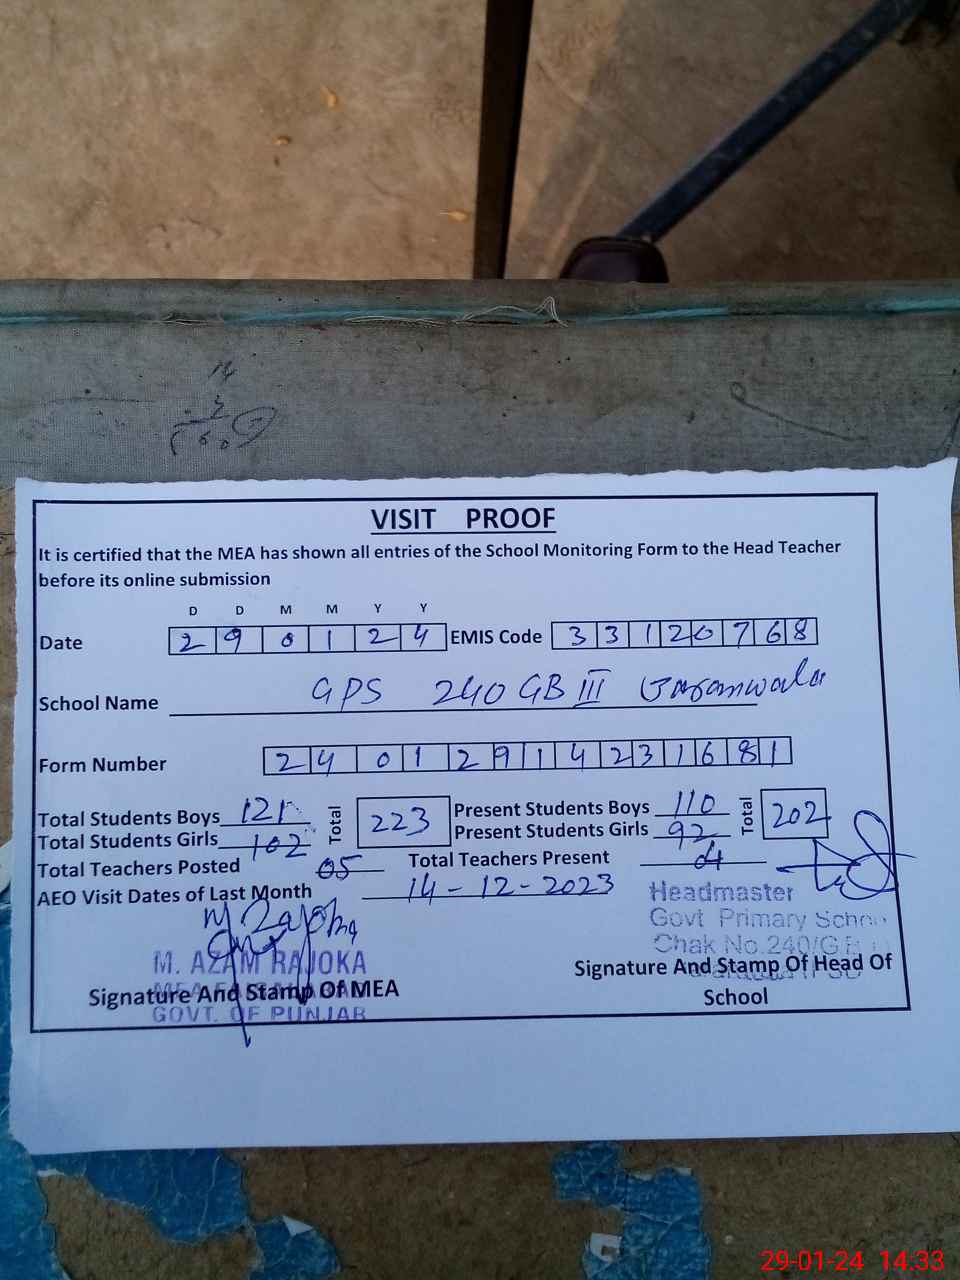 14
VISIT PROOF
It is certified that the MEA has shown all entries of the School Monitoring Form to the Head Teacher
before its online submission
D D M M Y Y
Date 2 9 0 1 2 4 EMIS Code 3 3 1 2 0 7 6 8
School Name GPS 240 GB III
Form Number 2 4 0 1 2 9 1 4 2 3 1 6 8 1
Total Students Boys 121 Total 223 Present Students Boys 110 Total 202
Total Students Girls 102 Present Students Girls 92
Total Teachers Posted 05 Total Teachers Present 04
AEO Visit Dates of Last Month 14-12-2023
Headmaster
Govt Primary
Chak No.240/G
M. AZAM RAJOKA
Signature And Stamp Of MEA
GOVT. OF PUNJAB
Signature And Stamp Of Head Of
School
29-01-24 14:33